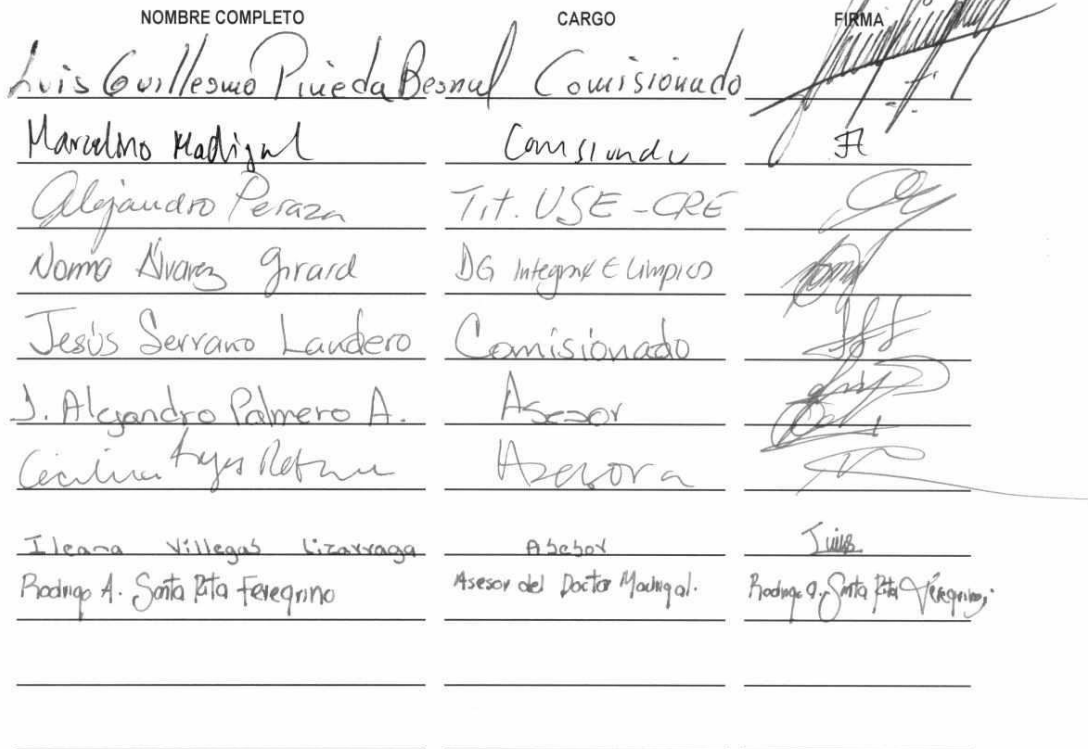 NOMBRE COMPLETO CARGO FIRMA
Luis Guillermo Pineda Bernal Comisionado
Marcelino Madrigal Comisionado
Alejandro Peraza Tit. USE-CRE
Norma Álvarez Girard DG E Limpios
Jesús Serrano Landero Comisionado
J. Alejandro Palmero A. Asesor
Cecilia Asesora
Ileana Villegas Lizarraga Asesor
Rodrigo A. Santa Rita Feregrino Asesor del Doctor Madrigal. Rodrigo A. Santa Rita Feregrino